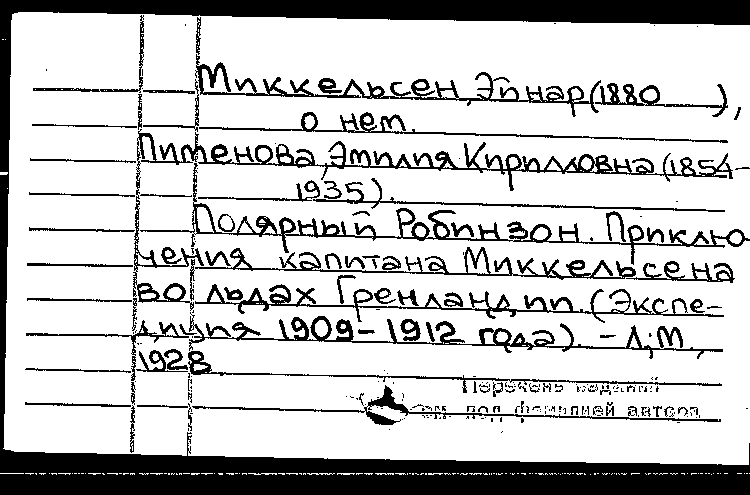 Миккельсен, Эйнар (1880 ),
о нем.
Пименова, Эмилия Кирилловна (1854-
1935).
Полярный Робинзон. Приклю-
чения капитана Миккельсена
во льдах Гренландии. (Экспе-
диция 1909-1912 года). - Л; М.,
1928
Перечень изданий
см. под фамилией автора